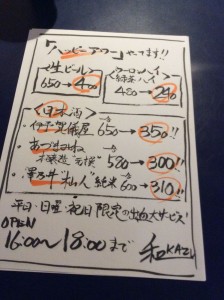 「ハッピーアワー」やってます!!
生ビール
650→400
ウーロンハイ
緑茶ハイ
480→290
<日本酒>
・伊予賀儀屋 650→350!!
・あづまみね
580→300!!
純米 600→310!!
平日・日曜・祝日限定の出血大サービス!
OPEN
16:00~18:00まで
和KAZU